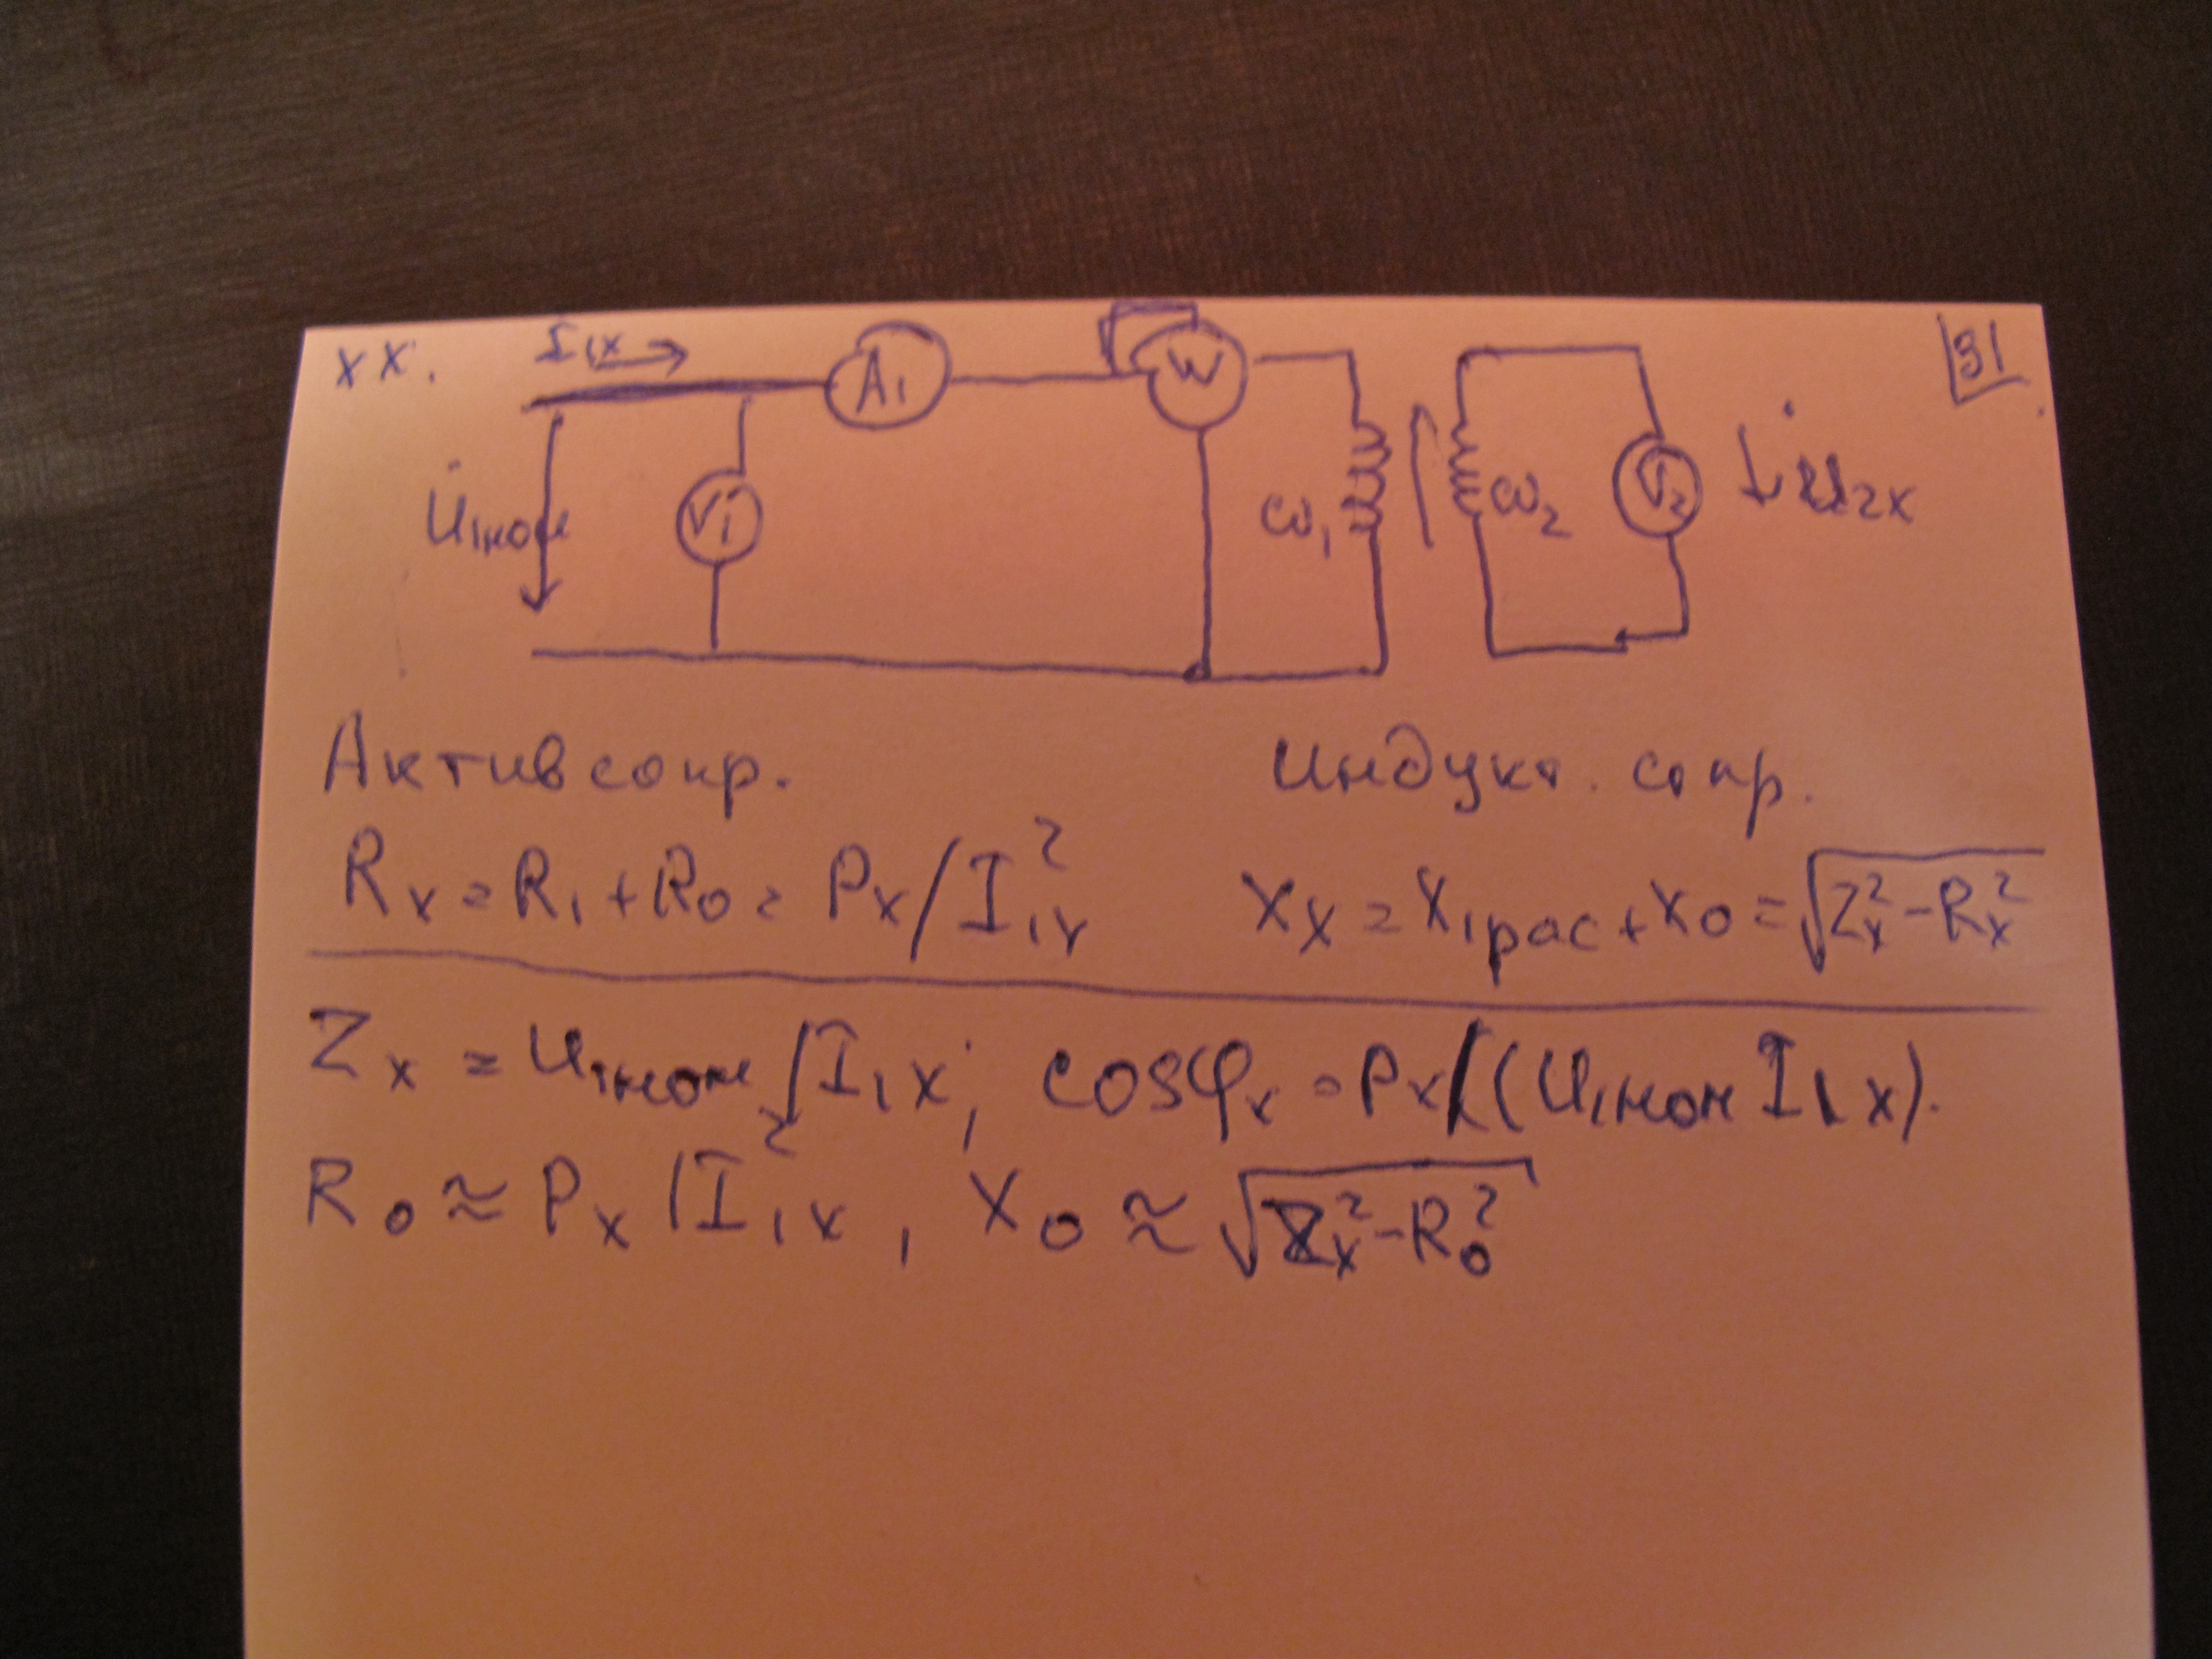 хх. I₁ₓ 31
A₁ W
U̇₁ном V₁ ω₁ ω₂ V₂ U̇₂ₓ
Актив сопр. Индукт. сопр.
Rₓ = R₁ + R₀ = Pₓ / I₁ₓ² Xₓ = X₁рас + X₀ = √(Zₓ² - Rₓ²)
Zₓ = U₁ном / I₁ₓ; cosφₓ = Pₓ / (U₁ном I₁ₓ).
R₀ ≈ Pₓ / I₁ₓ², X₀ ≈ √(Zₓ² - R₀²)